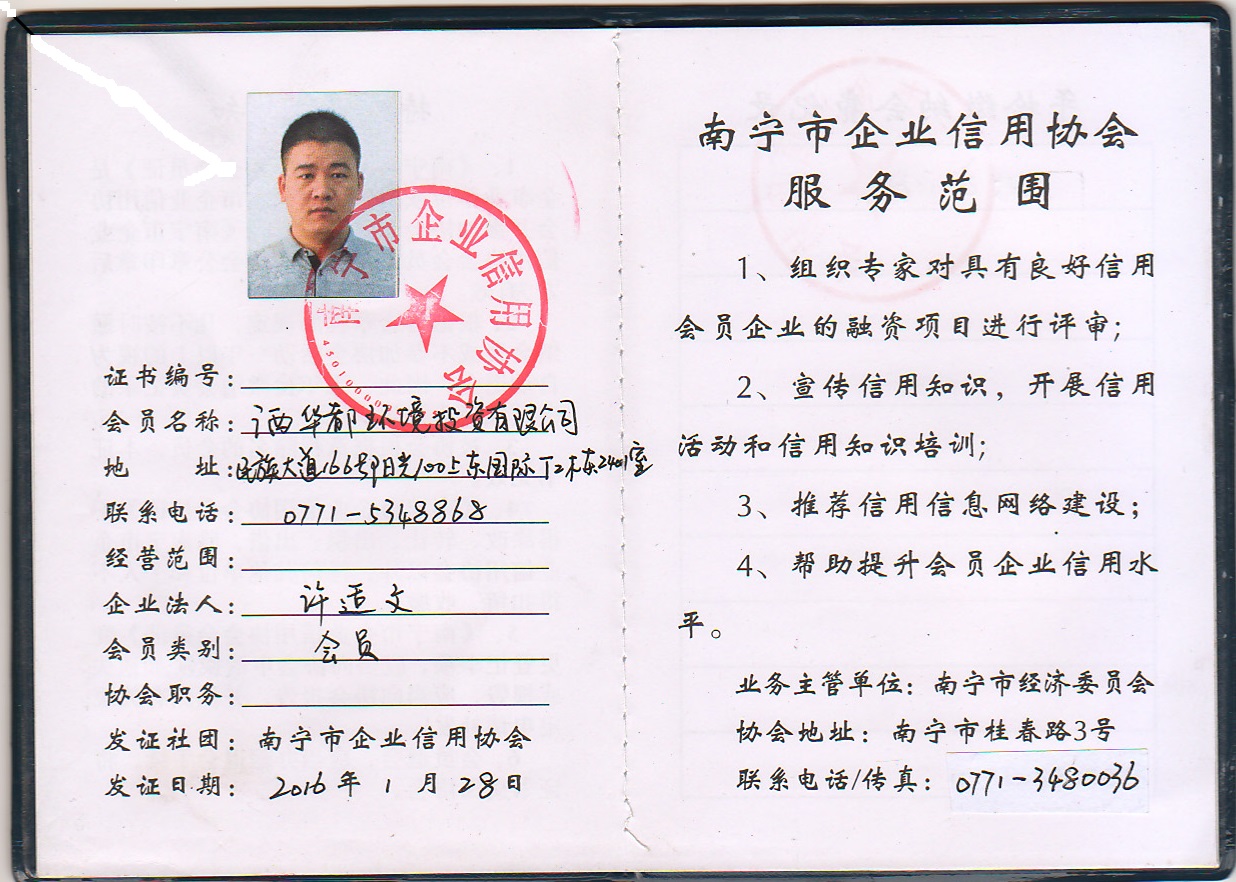 南宁市企业信用协会
证书编号：
会员名称：广西华都环境投资有限公司
地 址：民族大道166号阳光100上东国际T2栋2401室
联系电话：0771-5348868
经营范围：
企业法人：许适文
会员类别：会员
协会职务：
发证社团：南宁市企业信用协会
发证日期：2016年1月28日
南宁市企业信用协会
服务范围
1、组织专家对具有良好信用
会员企业的融资项目进行评审；
2、宣传信用知识，开展信用
活动和信用知识培训；
3、推荐信用信息网络建设；
4、帮助提升会员企业信用水
平。
业务主管单位：南宁市经济委员会
协会地址：南宁市桂春路3号
联系电话/传真：0771-3480036